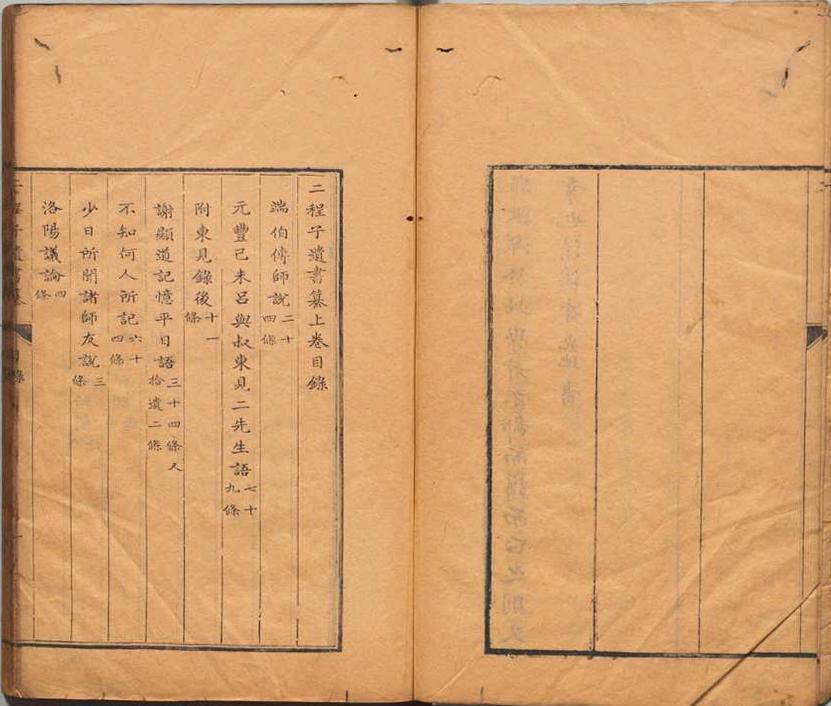 二程子遺書纂上卷目錄
端伯傳師說二十四條
元豐己未呂與叔東見二先生語七十九條
附東見錄後十一條
謝顯道記憶平日語三十四條又拾遺二條
不知何人所記六十四條
少日所聞諸師友說三條
洛陽議論四條
二程子遺書纂